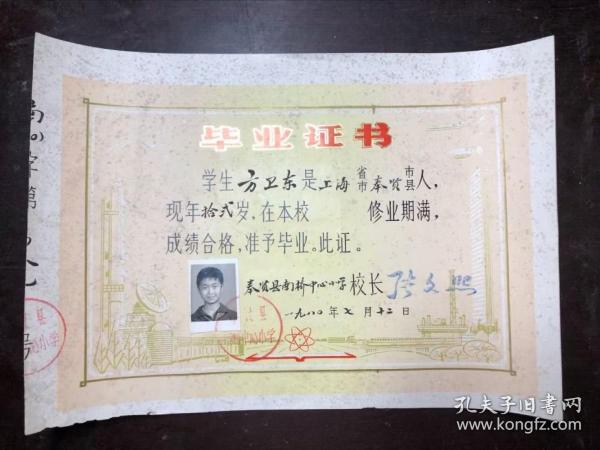 毕业证书
学生方卫东是上海省市奉贤市县人，
现年拾弍岁，在本校 修业期满，
成绩合格，准予毕业。此证。
奉贤县南桥中心小学校长 张文熙
一九八〇年七月十二日
字第
号
孔夫子旧书网
www.kongfz.com